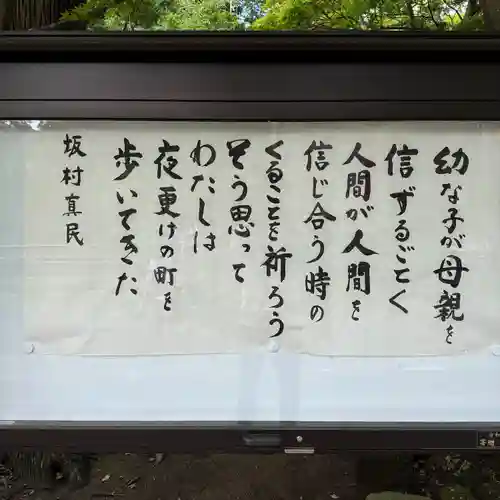 幼な子が母親を
信ずるごとく
人間が人間を
信じ合う時の
くることを祈ろう
そう思って
わたしは
夜更けの町を
歩いてきた
坂村真民